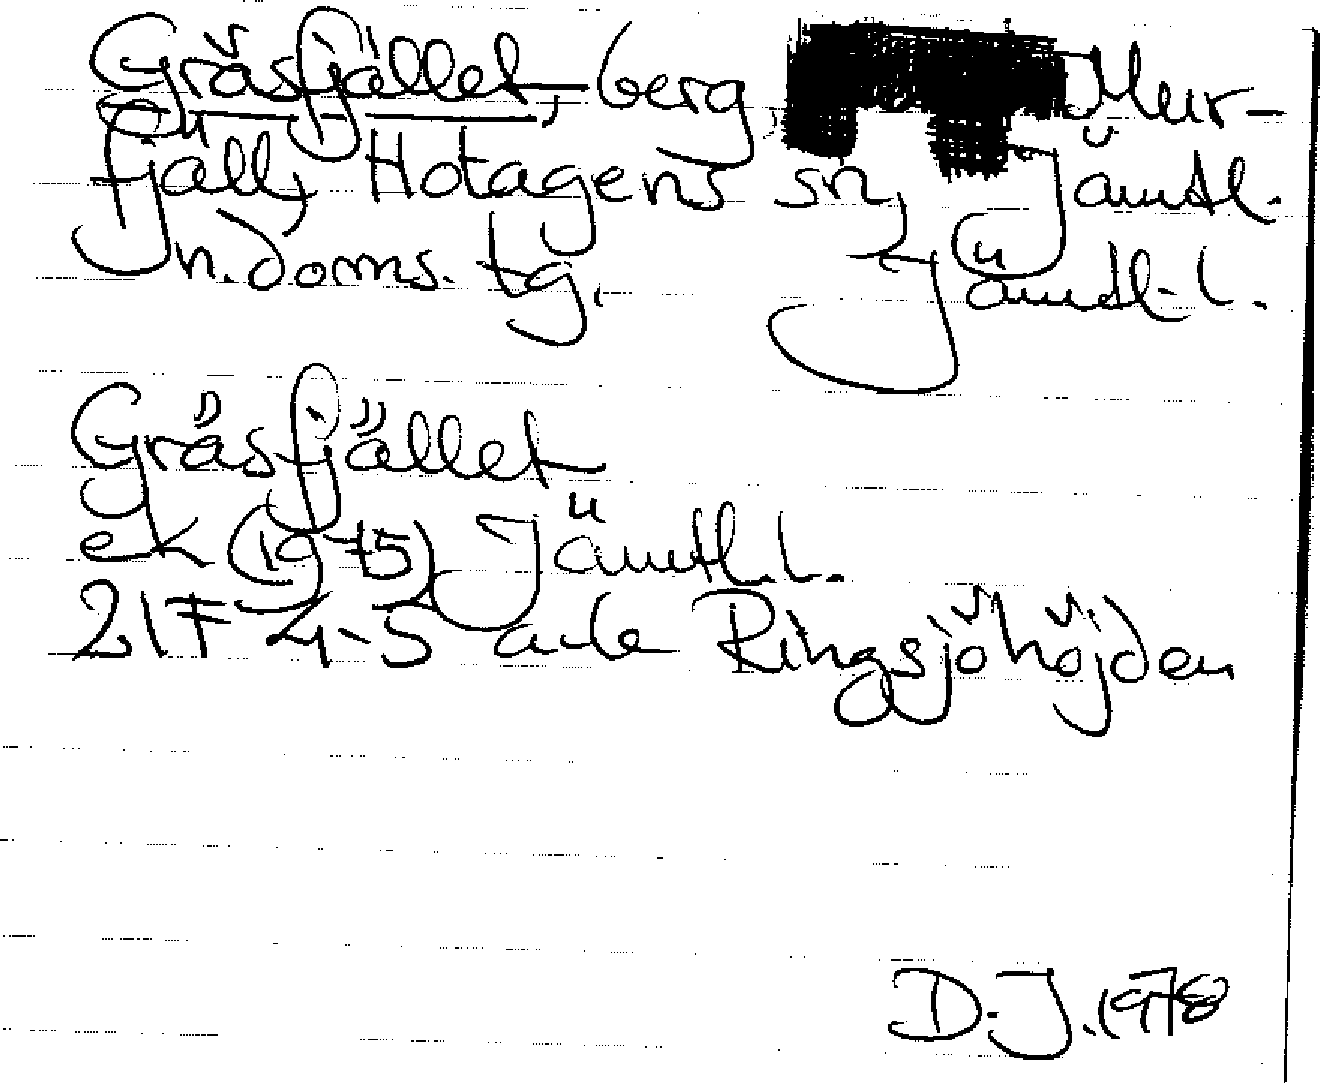 Gräsfjället, berg, Mur-
fjäll, Hotagens sn, Jämtl.
n. doms. tg. Jämtl. l.
Gräsfjället
ek (1975) Jämtl. l.
21F 4-5 a-b Ringsjöhöjden
D.J. 1978